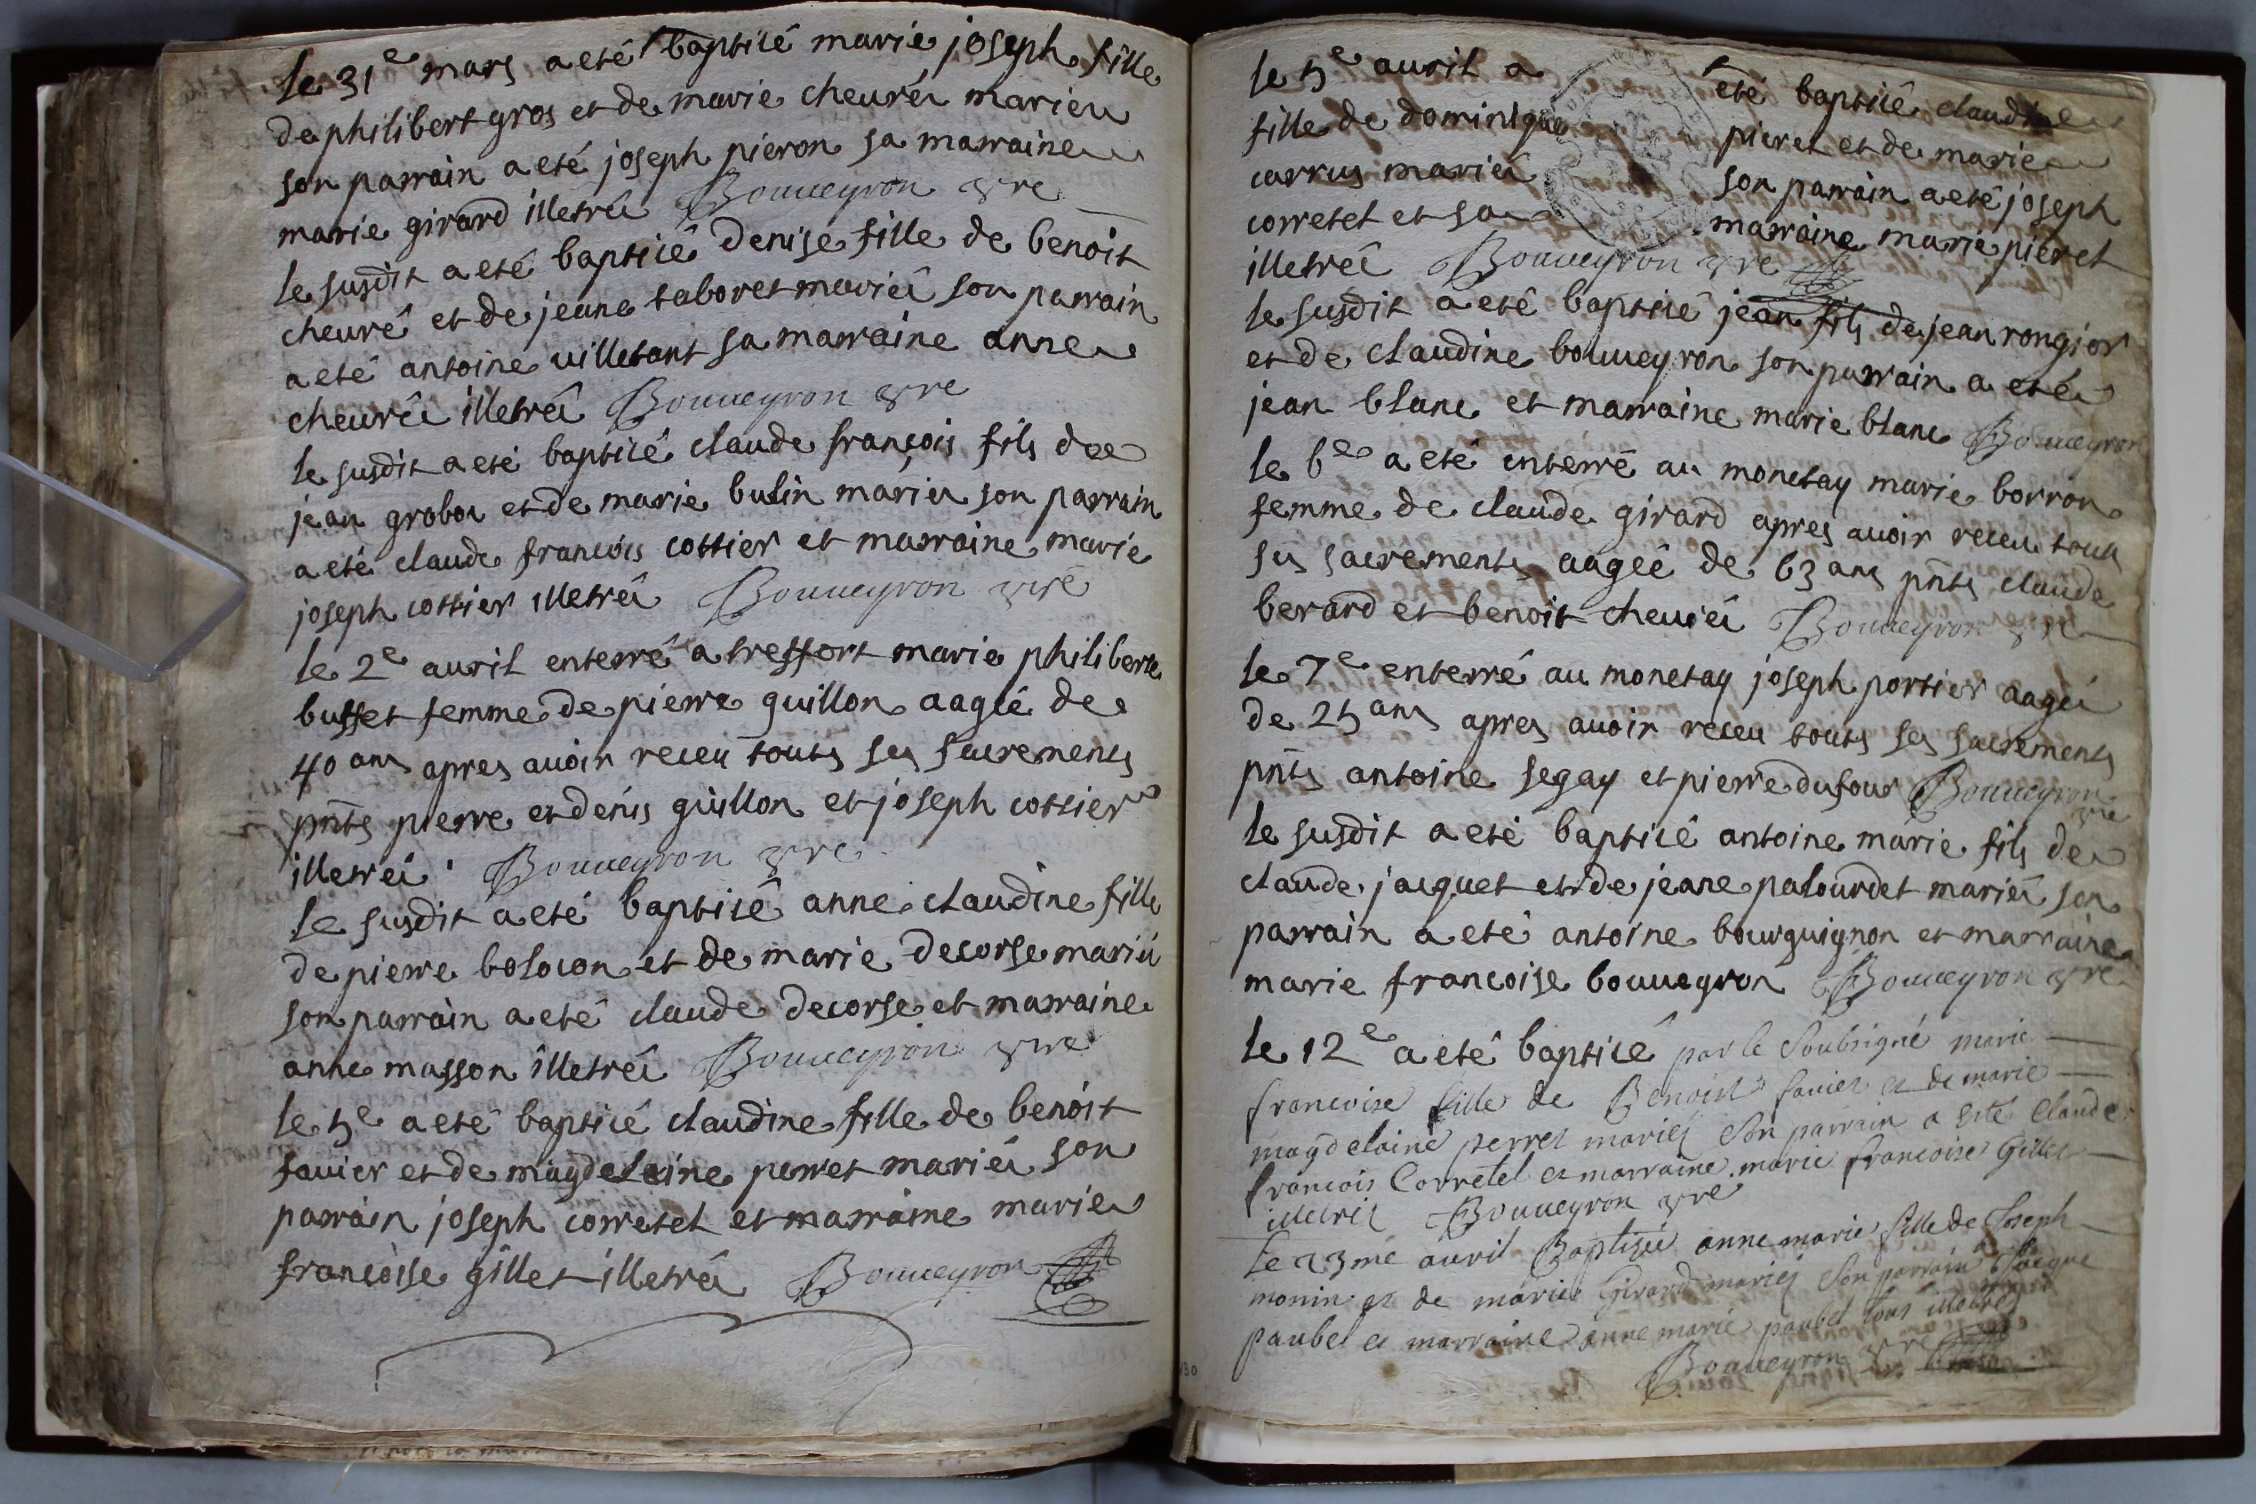 le 31e mars a eté bapticé marie joseph fille
de philibert gros et de marie cheuréé mariéé
son parrain a eté joseph pieron sa marraine
marie girard illetréé Bouueyron vre
le susdit a eté bapticé denise fille de benoit
cheuré et de jeane taboret mariéé son parrain
a eté antoine uilletant sa marraine anne
cheuréé illetréé Bouueyron vre
le susdit a eté bapticé claude françois fils de
jean grobou et de marie bulin mariéé son parrain
a eté claude françois cottier et marraine marie
joseph cottier illetréé Bouueyron vre
le 2e auril enterré a treffort marie philiberte
buffet femme de pierre guillon aagéé de
40 ans apres auoir receu touts ses sacrements
pnts pierre et denis guillon et joseph cottier
illetréé Bouueyron vre
le susdit a eté bapticé anne claudine fille
de pierre bolocon et de marie decorse mariéé
son parrain a eté claude decorse et marraine
anne masson illetréé Bouueyron vre
le 5e a eté bapticé claudine fille de benoit
fauier et de magdeleine perret mariéé son
parrain joseph corretet et marraine marie
françoise gillet illetréé Bouueyron
le 5e auril a eté bapticé claudine
fille de dominique pieret et de marie
carrus mariéé son parrain a eté joseph
corretet et sa marraine marie pieret
illetréé Bouueyron vre
le susdit a eté bapticé jean fils de jean rongior
et de claudine bouueyron son parrain a eté
jean blanc et marraine marie blanc Bouueyron
le 6e a eté enterré au monetay marie borron
femme de claude girard apres auoir receu touts
ses sacrements aagéé de 63 ans pnts claude
berard et benoit cheuréé Bouueyron vre
le 7e enterré au monetay joseph portier aagéé
de 25 ans apres auoir receu touts ses sacrements
pnts antoine segay et pierre dufour Bouueyron
vre
le susdit a eté bapticé antoine marie fils de
claude jacquet et de jeane palourdet mariéé son
parrain a eté antoine bourguignon et marraine
marie françoise bouueyron Bouueyron vre
le 12e a eté bapticé par le soubsigné marie
francoise fille de Benoist fauier et de marie
magdelaine perret mariés son parrain a esté Claude
francois Corretet et marraine marie francoise Gillet
illetrés Bouueyron vre
Le 23me auril Baptisée anne marie fille de Joseph
monin et de marie Girard mariés son parrain Jacque
paubel et marraine anne marie paubel tous illetrés
Bouueyron vre